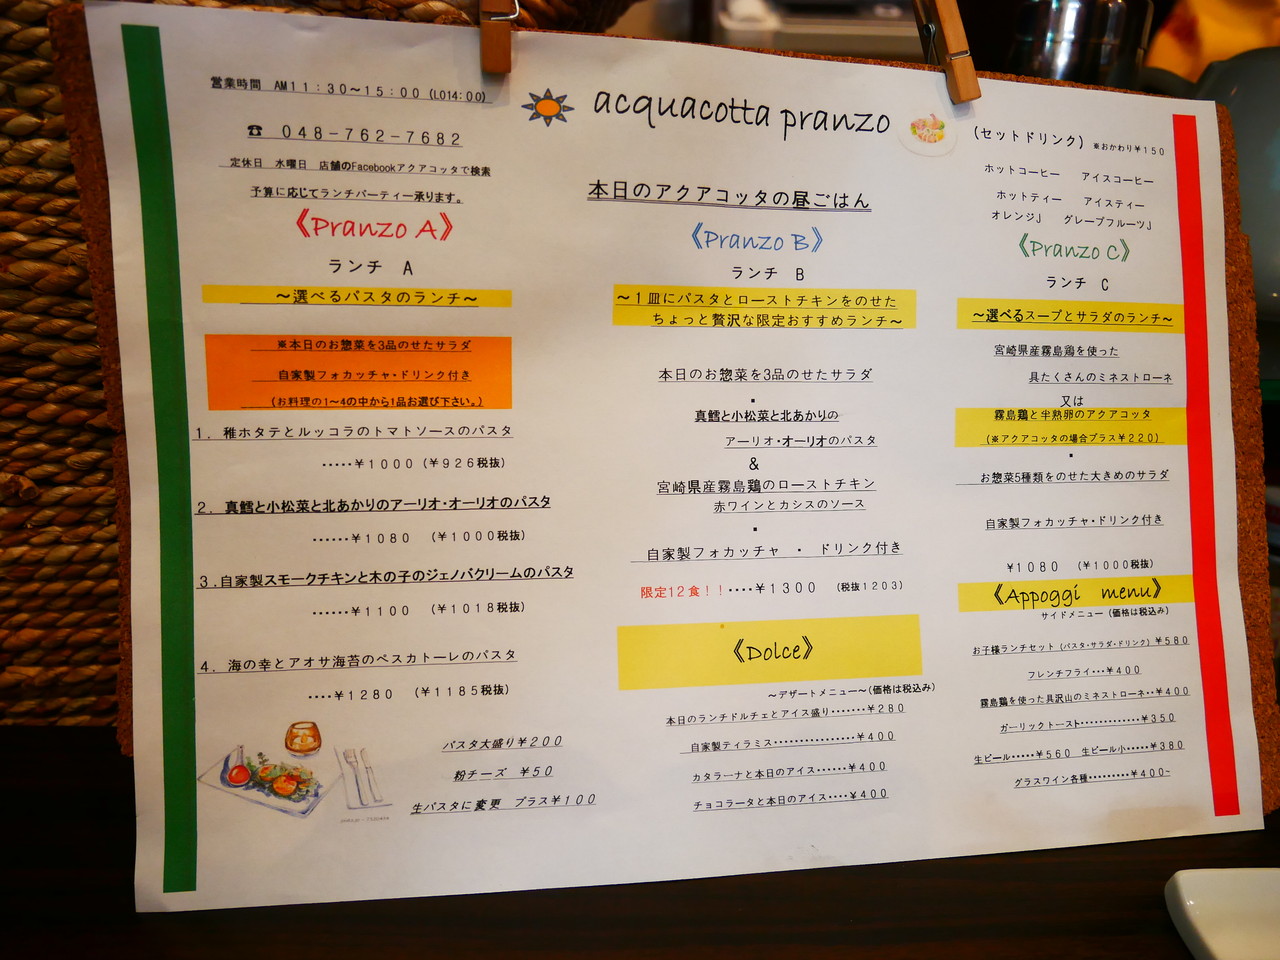 営業時間　AM11:30～15:00 (LO14:00)
☎ 048-762-7682
定休日　水曜日　店舗のFacebookアクアコッタで検索
予算に応じてランチパーティー承ります。
acquacotta pranzo
本日のアクアコッタの昼ごはん
(セットドリンク) ※おかわり¥150
ホットコーヒー　アイスコーヒー
ホットティー　アイスティー
オレンジJ　グレープフルーツJ
《Pranzo A》
ランチ　A
～選べるパスタのランチ～
※本日のお惣菜を3品のせたサラダ
自家製フォカッチャ・ドリンク付き
(お料理の1～4の中から1品お選び下さい。)
1. 稚ホタテとルッコラのトマトソースのパスタ
‥‥‥¥1000 (¥926税抜)
2. 真鱈と小松菜と北あかりのアーリオ・オーリオのパスタ
‥‥‥¥1080　(¥1000税抜)
3.自家製スモークチキンと木の子のジェノバクリームのパスタ
‥‥‥¥1100　(¥1018税抜)
4. 海の幸とアオサ海苔のペスカトーレのパスタ
‥‥¥1280　(¥1185税抜)
パスタ大盛り¥200
粉チーズ　¥50
生パスタに変更　プラス¥100
《Pranzo B》
ランチ　B
～1皿にパスタとローストチキンをのせた
ちょっと贅沢な限定おすすめランチ～
本日のお惣菜を3品のせたサラダ
・
真鱈と小松菜と北あかりの
アーリオ・オーリオのパスタ
&
宮崎県産霧島鶏のローストチキン
赤ワインとカシスのソース
・
自家製フォカッチャ　・　ドリンク付き
限定12食！！‥‥¥1300　(税抜1203)
《Dolce》
～デザートメニュー～(価格は税込み)
本日のランチドルチェとアイス盛り‥‥‥‥¥280
自家製ティラミス‥‥‥‥‥‥‥‥¥400
カタラーナと本日のアイス‥‥‥¥400
チョコラータと本日のアイス‥‥¥400
《Pranzo C》
ランチ　C
～選べるスープとサラダのランチ～
宮崎県産霧島鶏を使った
具たくさんのミネストローネ
又は
霧島鶏と半熟卵のアクアコッタ
(※アクアコッタの場合プラス¥220)
・
お惣菜5種類をのせた大きめのサラダ
自家製フォカッチャ・ドリンク付き
¥1080　(¥1000税抜)
《Appoggi menu》
サイドメニュー (価格は税込み)
お子様ランチセット (パスタ・サラダ・ドリンク) ¥580
フレンチフライ‥‥¥400
霧島鶏を使った具沢山のミネストローネ‥¥400
ガーリックトースト‥‥‥‥‥‥‥¥350
生ビール‥‥‥¥560　生ビール小‥‥‥¥380
グラスワイン各種‥‥‥‥‥¥400~